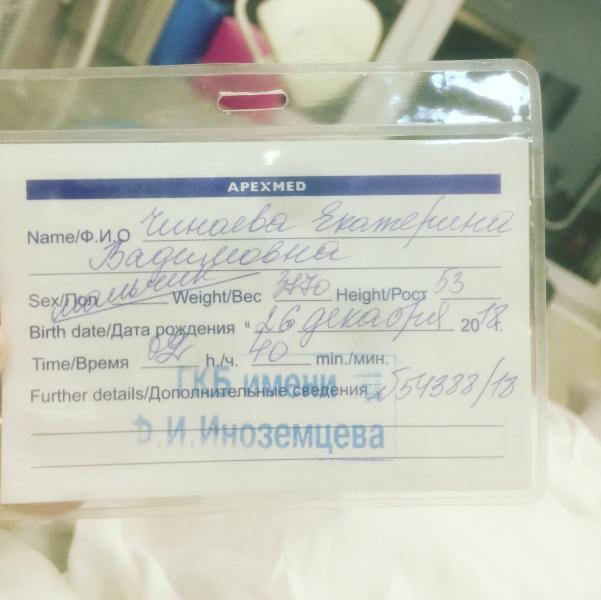 APEXMED
Name/Ф.И.О Чинаева Екатерина
Вадимовна
Sex/Пол мальчик Weight/Вес 3770 Height/Рост 53
Birth date/Дата рождения “26 декабря 2018 г.
Time/Время 02 h./ч. 40 min./мин.
Further details/Дополнительные сведения №54388/18
ГКБ имени
Ф.И.Иноземцева